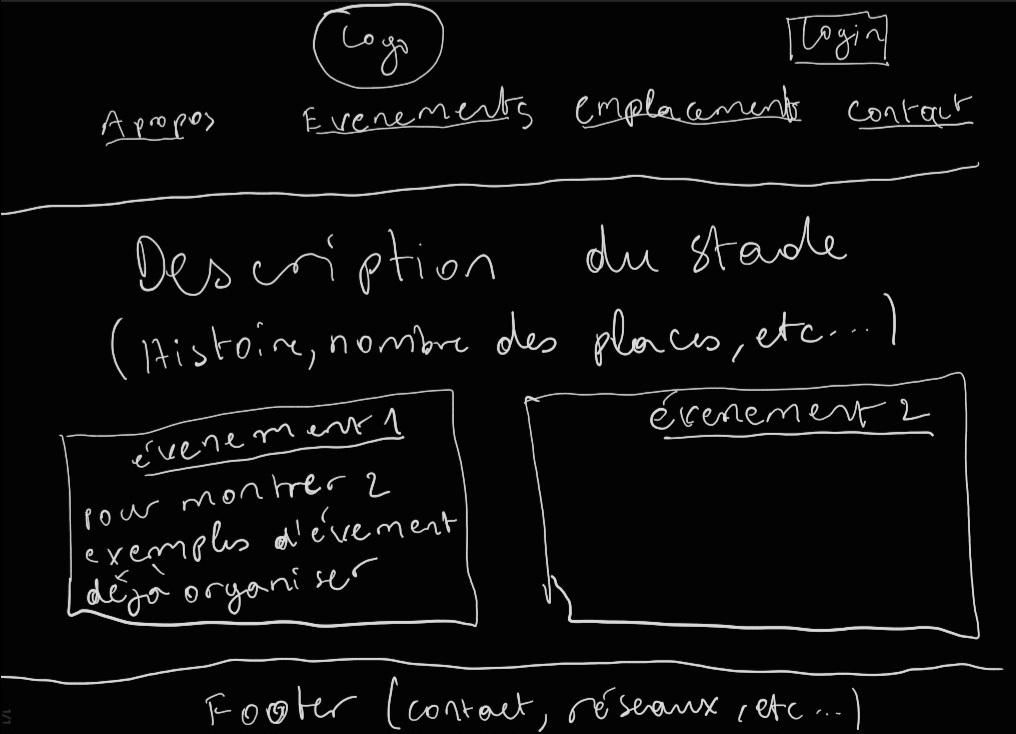 Logo
Login
A propos Evenements emplacement contact
Description du stade
(Histoire, nombre des places, etc...)
évenement 1
pour montrer 2
exemples d'évement
déjà organiser
évenement 2
Footer (contact, réseaux, etc...)
1/1